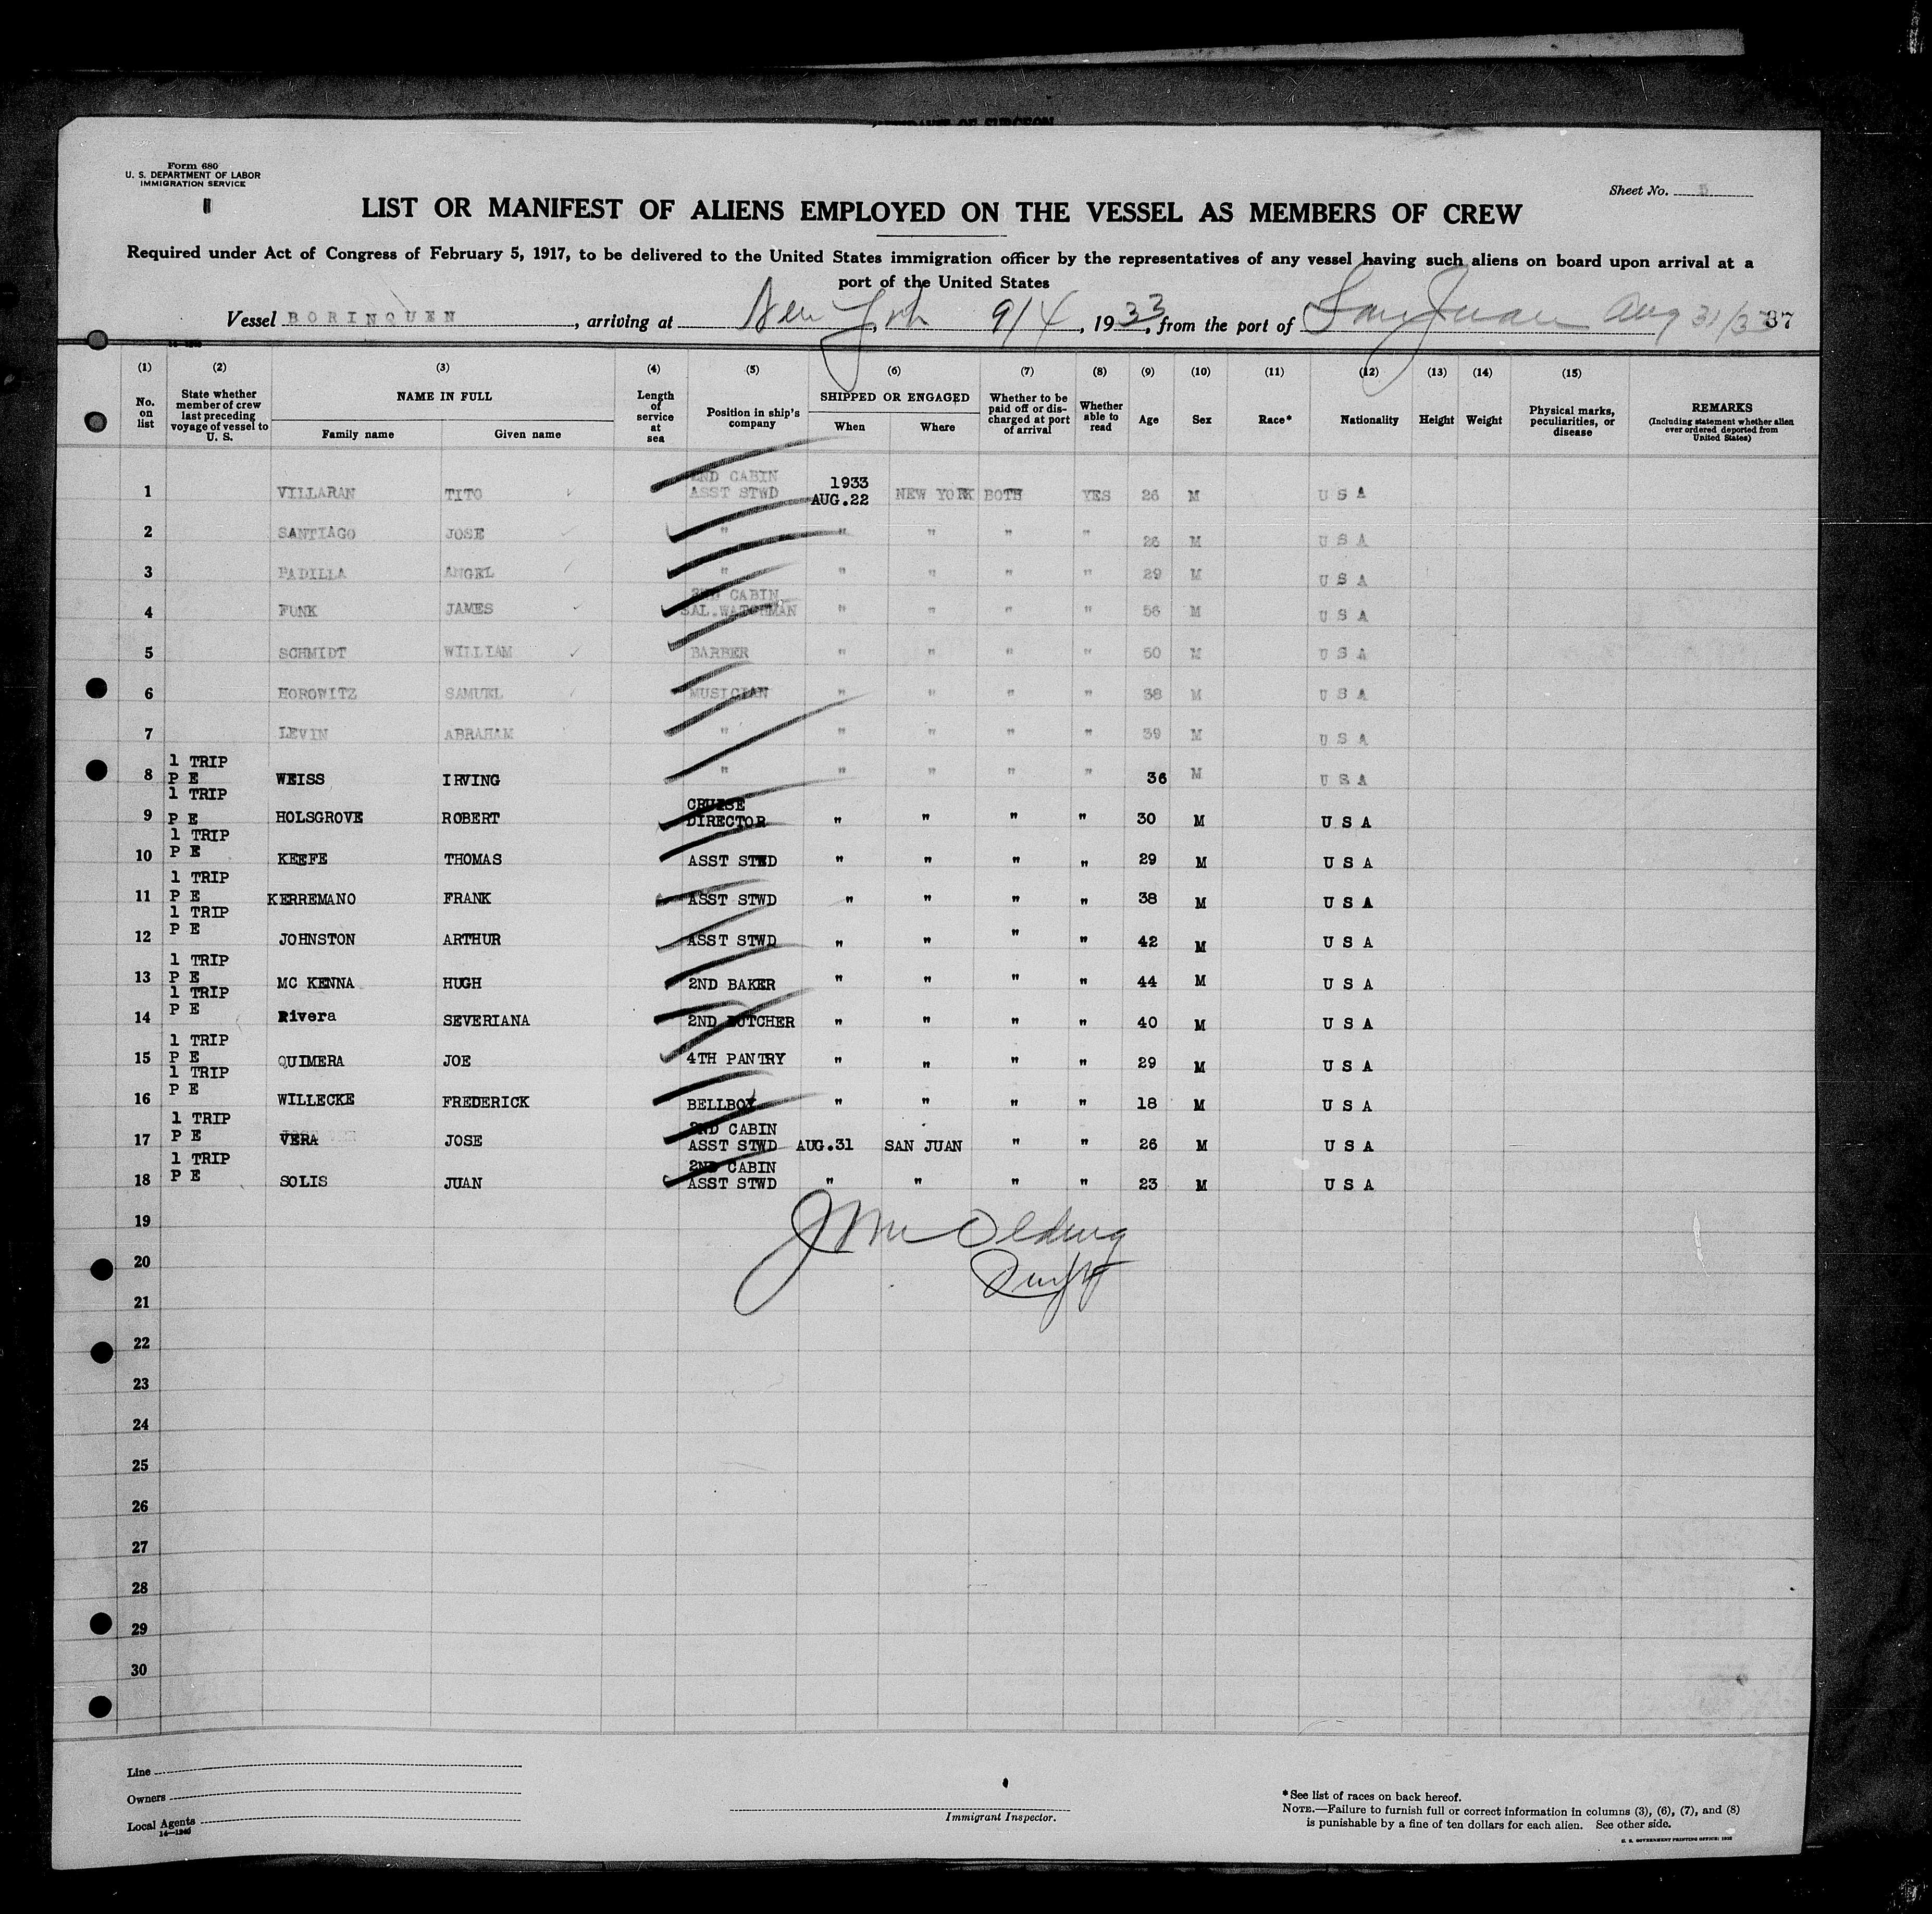 Form 680
U. S. DEPARTMENT OF LABOR
IMMIGRATION SERVICE
Sheet No. 5
LIST OR MANIFEST OF ALIENS EMPLOYED ON THE VESSEL AS MEMBERS OF CREW
Required under Act of Congress of February 5, 1917, to be delivered to the United States immigration officer by the representatives of any vessel having such aliens on board upon arrival at a
port of the United States
Vessel BORINQUEN, arriving at New York 9/4, 1933, from the port of San Juan Aug 31/33 37
(1) (2) (3) (4) (5) (6) (7) (8) (9) (10) (11) (12) (13) (14) (15)
No. on list State whether member of crew last preceding voyage of vessel to U. S. NAME IN FULL Family name Given name Length of service at sea Position in ship's company SHIPPED OR ENGAGED When Where Whether to be paid off or discharged at port of arrival Whether able to read Age Sex Race* Nationality Height Weight Physical marks, peculiarities, or disease REMARKS (Including statement whether alien ever ordered deported from United States)
1 VILLARAN TITO 2ND CABIN ASST STWD 1933 AUG.22 NEW YORK BOTH YES 26 M U S A
2 SANTIAGO JOSE " " " " " 28 M U S A
3 PADILLA ANGEL " " " " " 29 M U S A
4 FUNK JAMES 2ND CABIN SAL.WATCHMAN " " " " 56 M U S A
5 SCHMIDT WILLIAM BARBER " " " " 50 M U S A
6 HOROWITZ SAMUEL MUSICIAN " " " " 38 M U S A
7 LEVIN ABRAHAM " " " " " 39 M U S A
8 1 TRIP P E WEISS IRVING " " " " " 36 M U S A
9 1 TRIP P E HOLSGROVE ROBERT CRUISE DIRECTOR " " " " 30 M U S A
10 1 TRIP P E KEEFE THOMAS ASST STED " " " " 29 M U S A
11 1 TRIP P E KERREMANO FRANK ASST STWD " " " " 38 M U S A
12 1 TRIP P E JOHNSTON ARTHUR ASST STWD " " " " 42 M U S A
13 1 TRIP P E MC KENNA HUGH 2ND BAKER " " " " 44 M U S A
14 1 TRIP P E Rivera SEVERIANA 2ND BUTCHER " " " " 40 M U S A
15 1 TRIP P E QUIMERA JOE 4TH PANTRY " " " " 29 M U S A
16 1 TRIP P E WILLECKE FREDERICK BELLBOY " " " " 18 M U S A
17 1 TRIP P E VERA JOSE 2ND CABIN ASST STWD AUG.31 SAN JUAN " " 26 M U S A
18 1 TRIP P E SOLIS JUAN 2ND CABIN ASST STWD " " " " 23 M U S A
19
20
21
22
23
24
25
26
27
28
29
30
Line
Owners
Local Agents
14—1240
Immigrant Inspector.
*See list of races on back hereof.
NOTE.—Failure to furnish full or correct information in columns (3), (6), (7), and (8)
is punishable by a fine of ten dollars for each alien. See other side.
U. S. GOVERNMENT PRINTING OFFICE: 1932